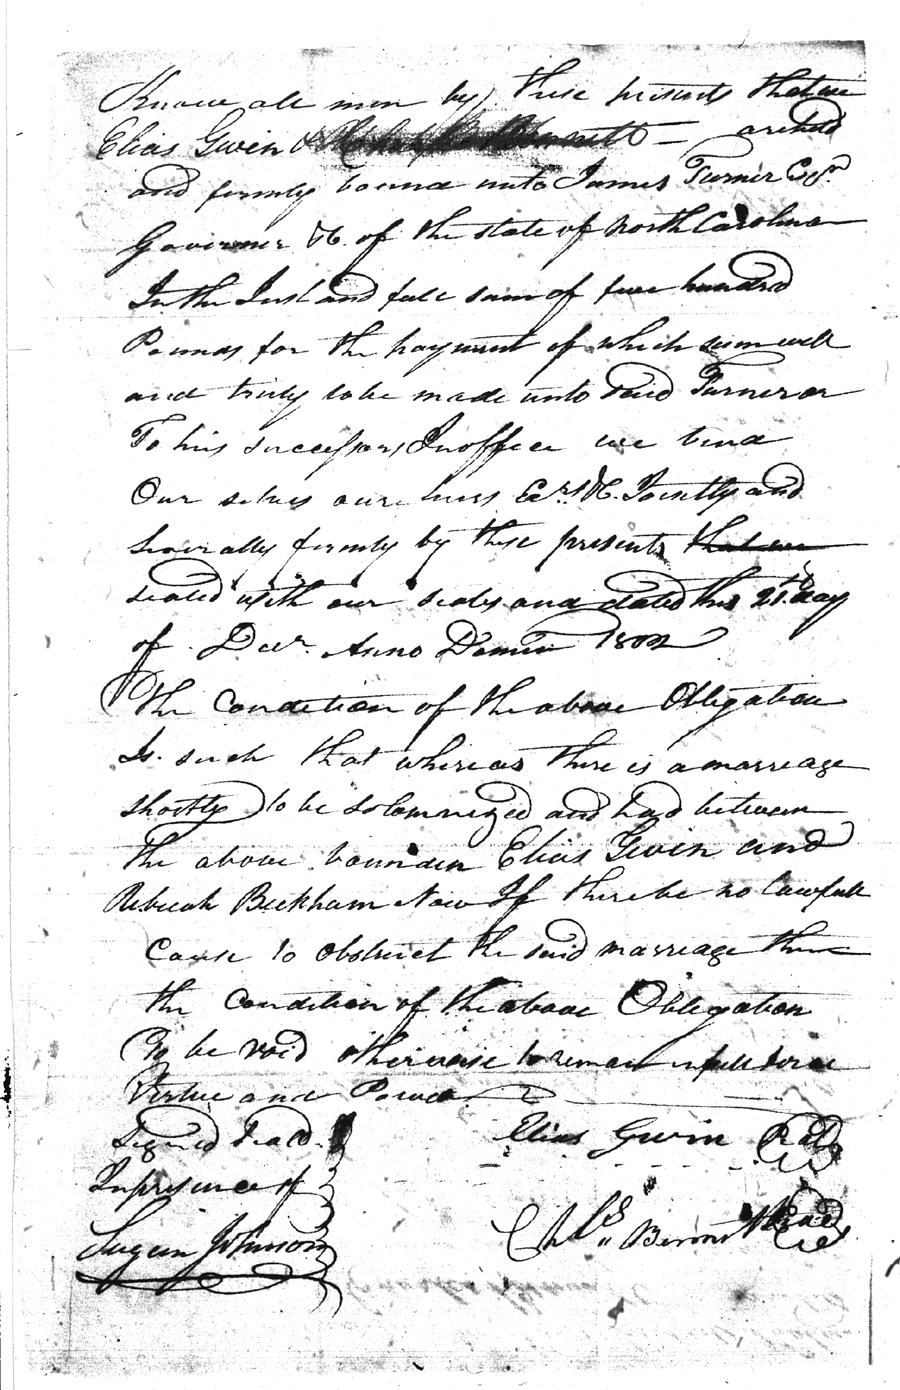 Know all men by these presents that we
Elias Gwin & Bennett are held
and firmly bound unto James Turner Esqr.
Governer &c. of the state of North Carolina
In the Just and full sum of five hundred
Pounds for the payment of which sum well
and truly to be made unto said Turner or
To his successors In office we bind
Our selves our heirs Exrs &c. Jointly and
Severally firmly by these presents that we
sealed with our seals and dated this 21st day
of Decr. Anno Domini 1802
The Condition of the above Obligation
Is such that whereas there is a marriage
shortly to be solomnized and had between
the above bounden Elias Gwin and
Rebecah Beckham Now If there be no lawfull
Cause to obstruct the said marriage then
the Condition of the above Obligation
To be void otherwise to remain in full force
Virtue and Power
Signed Seald
In presence of
Elias Gwin Seal
Chls. Bennett Seal
Johnson